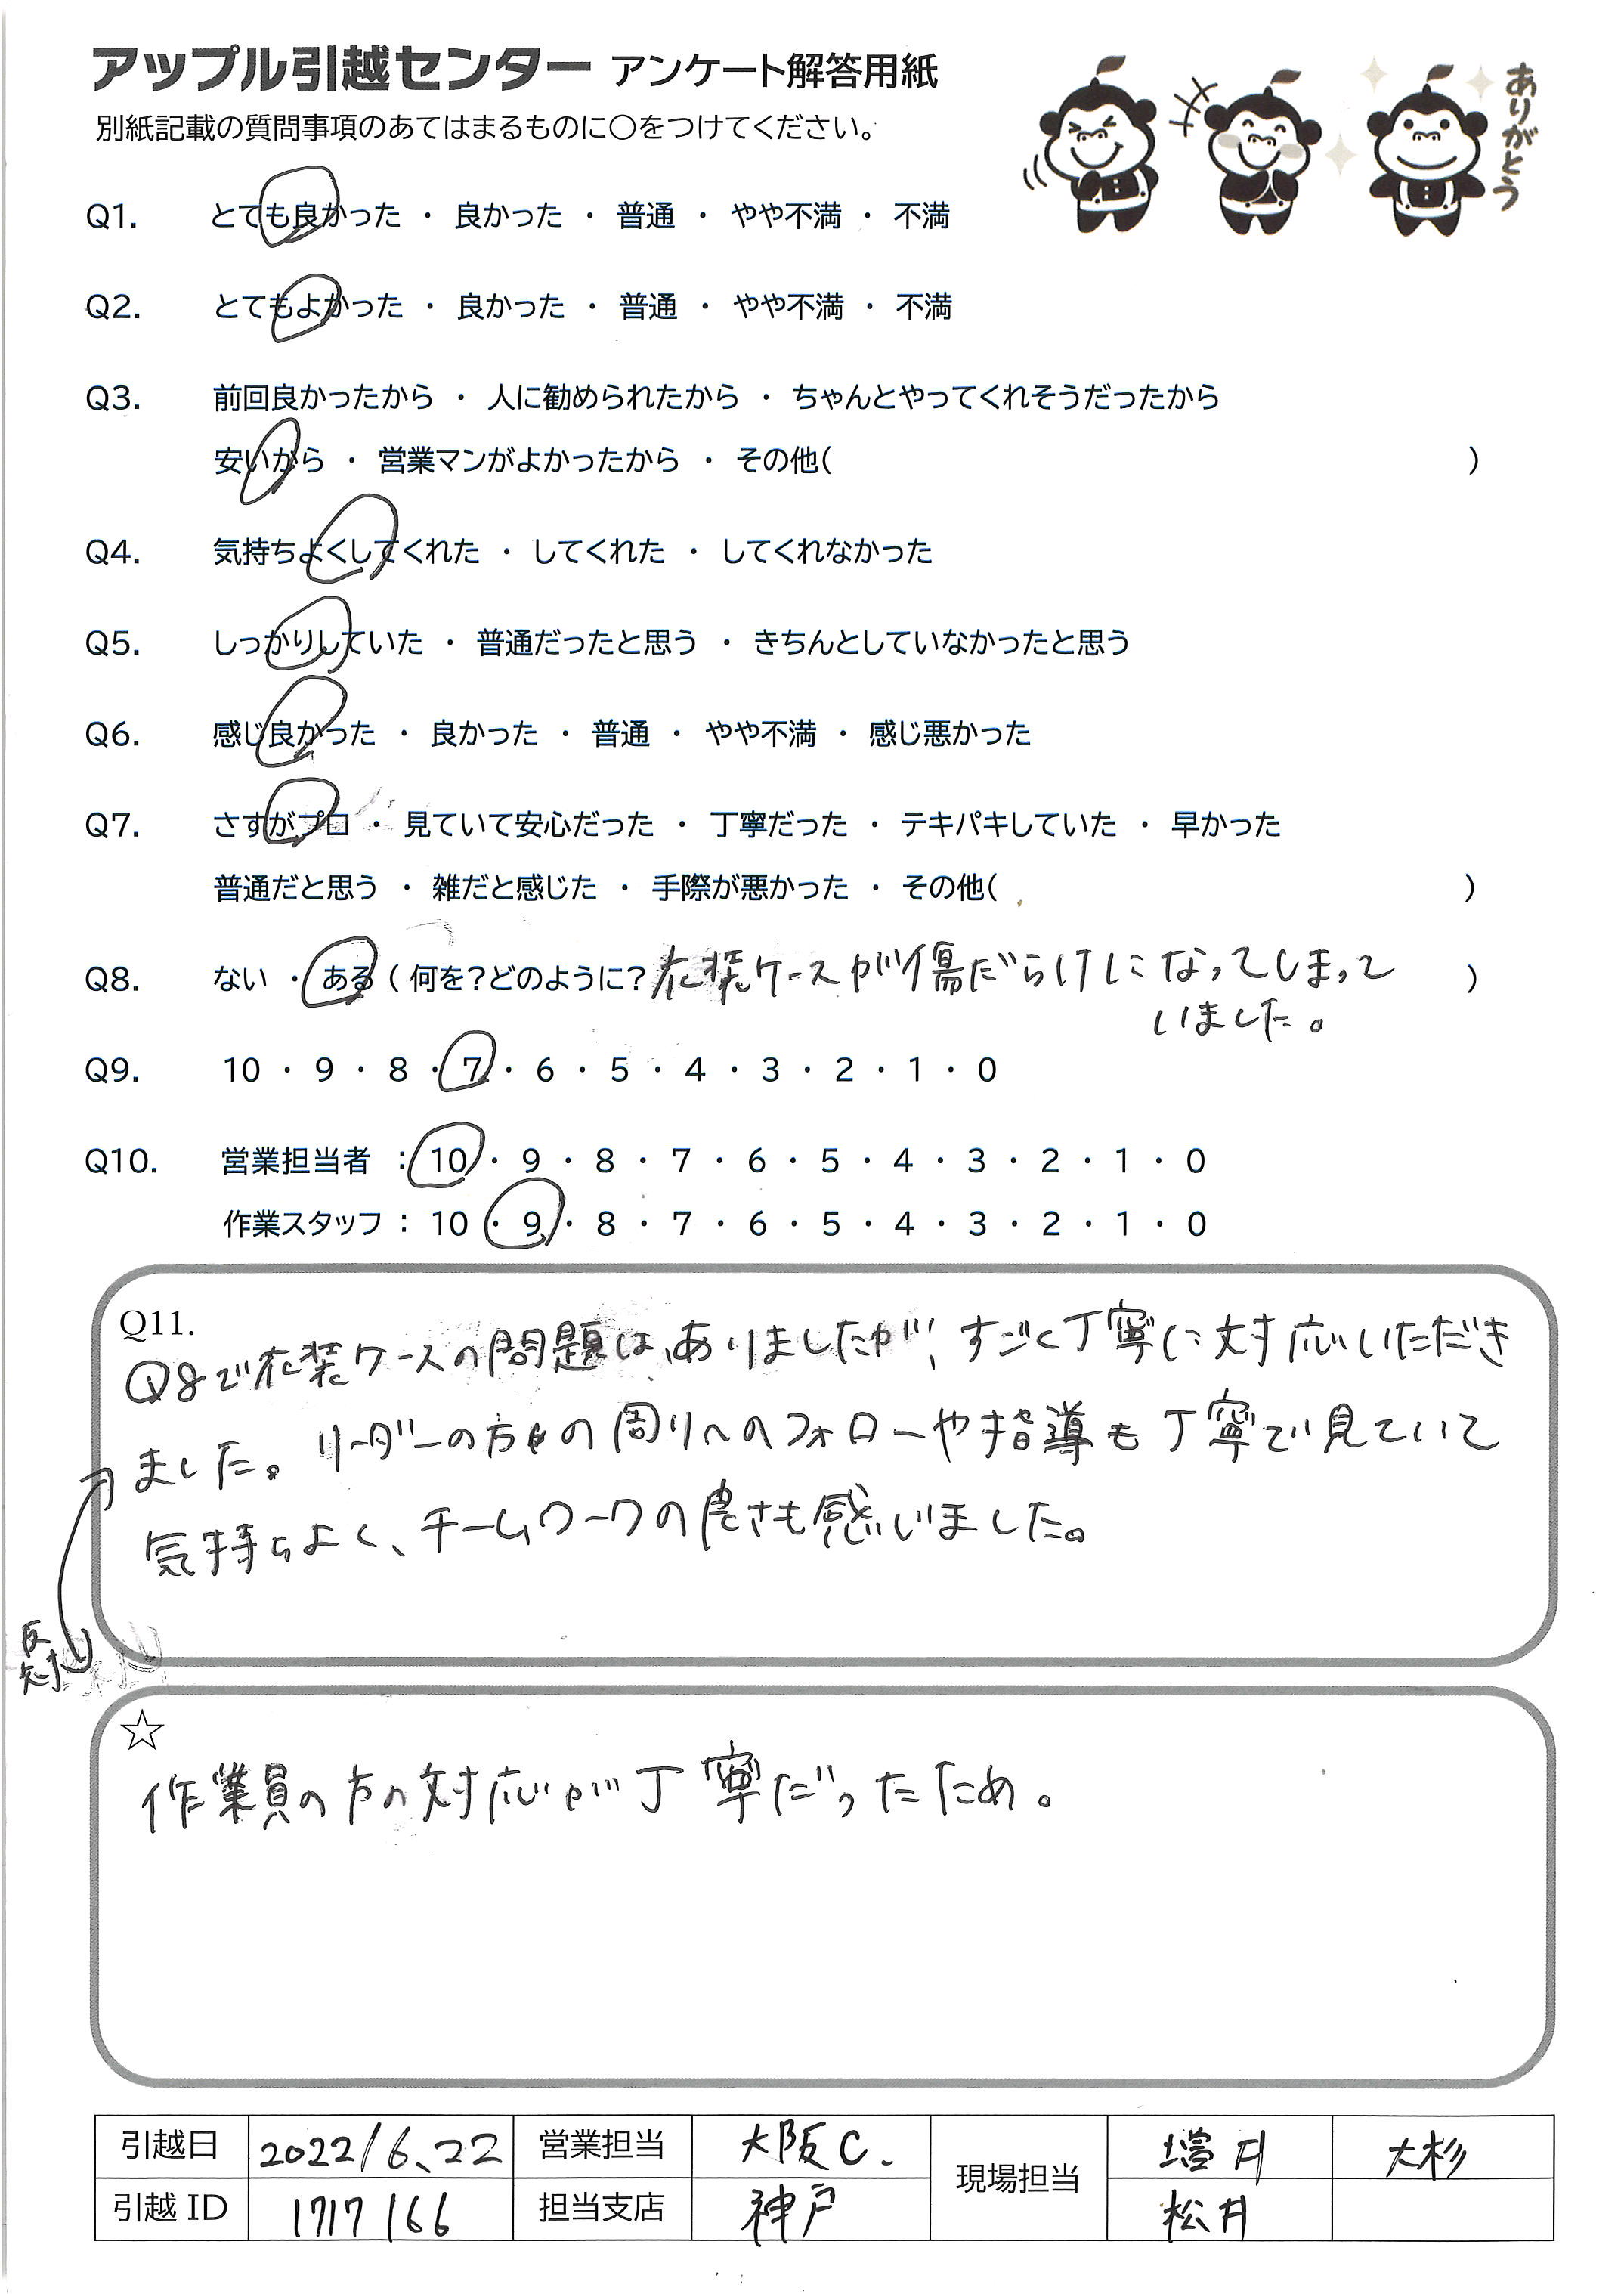 アップル引越センター アンケート解答用紙
別紙記載の質問事項のあてはまるものに○をつけてください。
ありがとう
Q1. とても良かった ・ 良かった ・ 普通 ・ やや不満 ・ 不満
Q2. とてもよかった ・ 良かった ・ 普通 ・ やや不満 ・ 不満
Q3. 前回良かったから ・ 人に勧められたから ・ ちゃんとやってくれそうだったから
安いから ・ 営業マンがよかったから ・ その他( )
Q4. 気持ちよくしてくれた ・ してくれた ・ してくれなかった
Q5. しっかりしていた ・ 普通だったと思う ・ きちんとしていなかったと思う
Q6. 感じ良かった ・ 良かった ・ 普通 ・ やや不満 ・ 感じ悪かった
Q7. さすがプロ ・ 見ていて安心だった ・ 丁寧だった ・ テキパキしていた ・ 早かった
普通だと思う ・ 雑だと感じた ・ 手際が悪かった ・ その他( )
Q8. ない ・ ある ( 何を?どのように? 衣装ケースが傷だらけになってしまって )
いました。
Q9. 10 ・ 9 ・ 8 ・ 7 ・ 6 ・ 5 ・ 4 ・ 3 ・ 2 ・ 1 ・ 0
Q10. 営業担当者 : 10 ・ 9 ・ 8 ・ 7 ・ 6 ・ 5 ・ 4 ・ 3 ・ 2 ・ 1 ・ 0
作業スタッフ : 10 ・ 9 ・ 8 ・ 7 ・ 6 ・ 5 ・ 4 ・ 3 ・ 2 ・ 1 ・ 0
Q11.
Q8で衣装ケースの問題は、ありましたが、すごく丁寧に対応いただき
ました。リーダーの方の周りへのフォローや指導も丁寧で見ていて
気持ちよく、チームワークの良さも感じました。
反対
☆
作業員の方の対応が丁寧だったため。
引越日 2022/6.22 営業担当 大阪C. 現場担当 増井 大杉
引越 ID 1717166 担当支店 神戸 松井